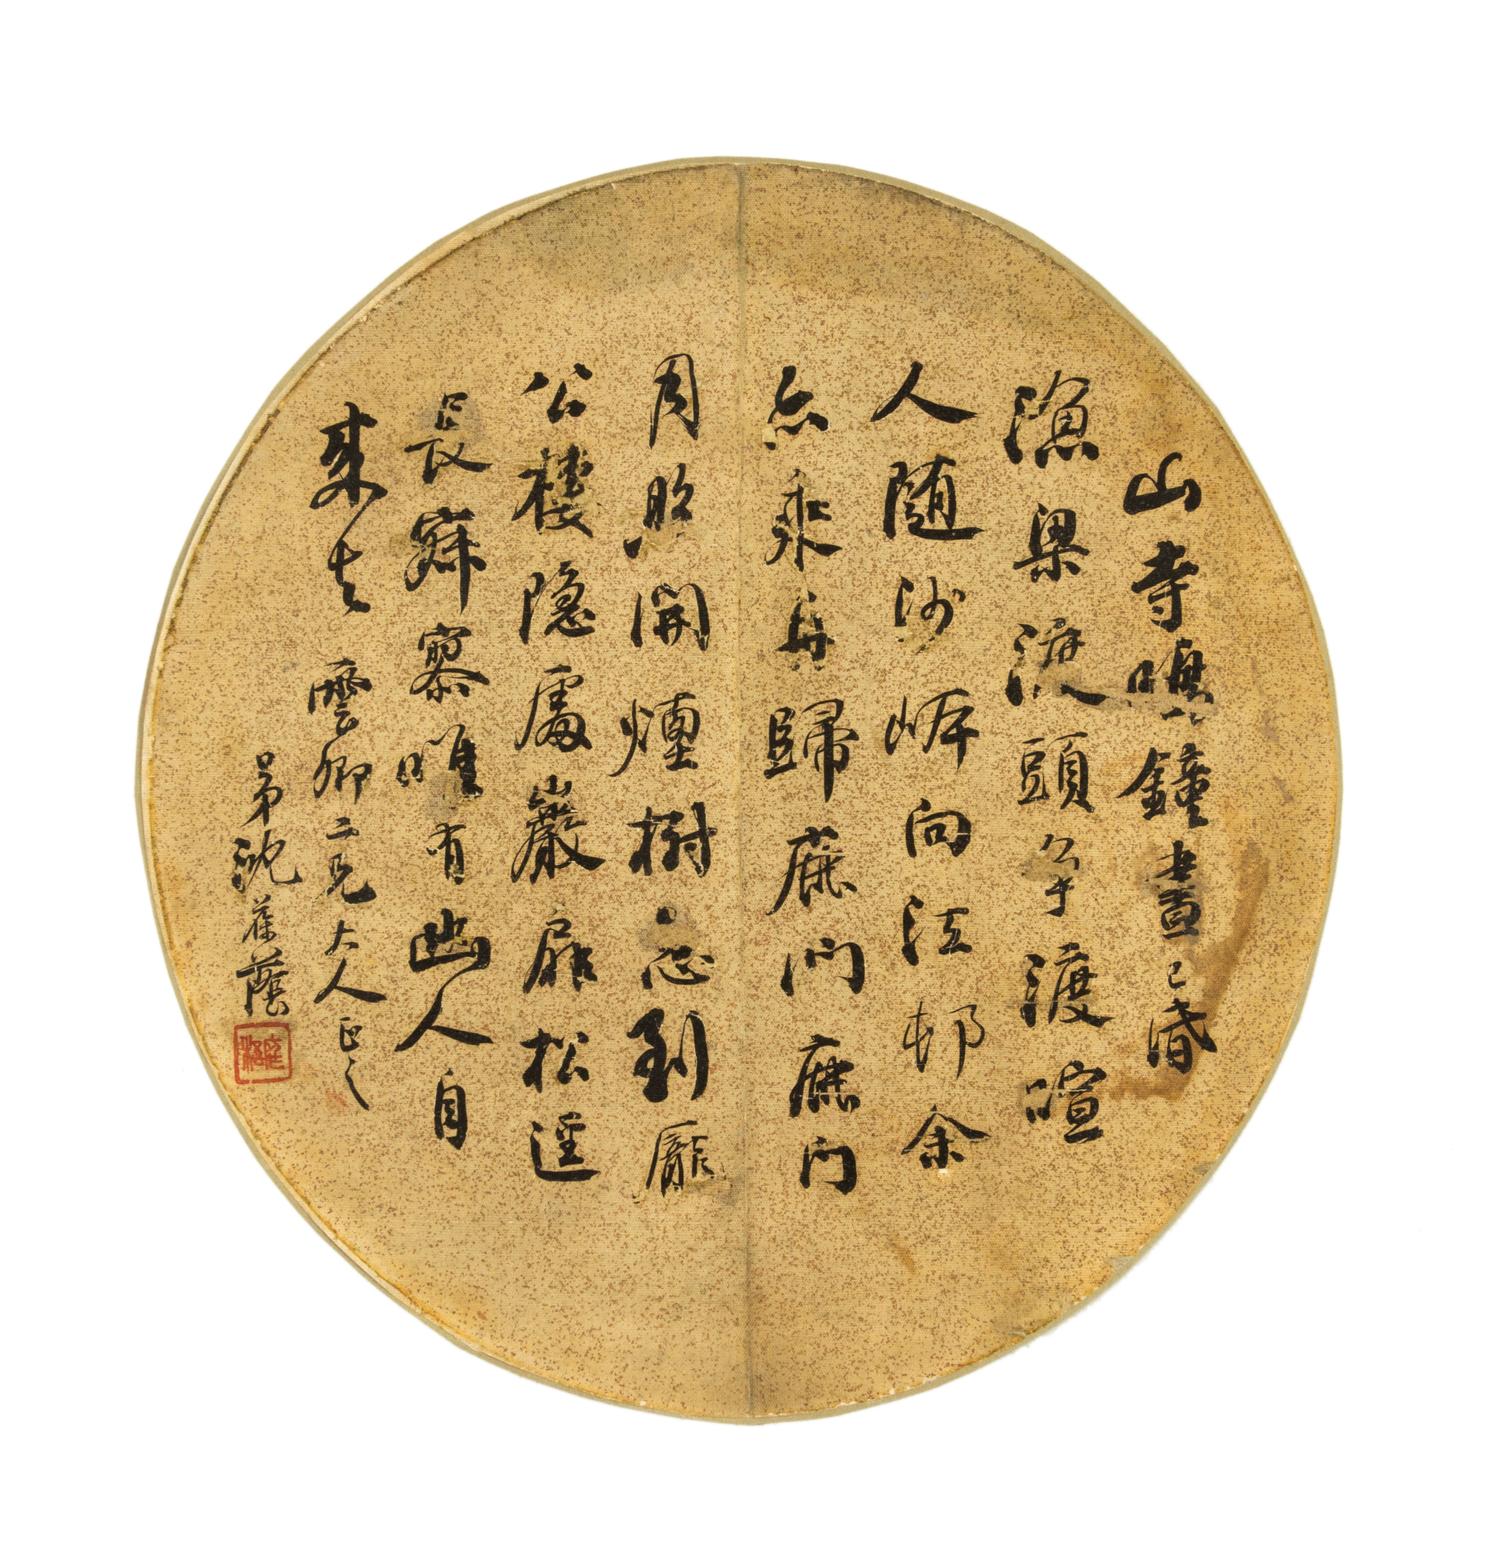 山寺鳴鐘晝已昏
漁梁渡頭爭渡喧
人随沙岸向江邨余
亦乘舟歸鹿門鹿門
月照開煙樹忽到龐
公棲隱處巖扉松逕
長寂寥唯有幽人自
來去 雲卿二兄大人正之
弟沈葆蔭